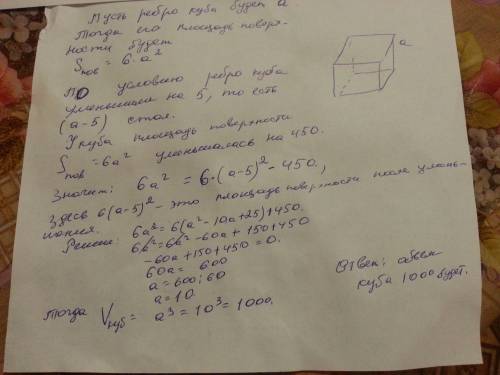 Пусть ребро куба будет a
Тогда его площадь поверх-
ности будет
Sпов = 6·a²
a
По условию ребро куба
уменьшили на 5, то есть
(a-5) стал.
У куба площадь поверхности
Sпов = 6a² уменьшилась на 450.
Значит: 6a² = 6·(a-5)² - 450.,
Здесь 6(a-5)² - это площадь поверхности после умень-
шения.
Решим: 6a² = 6(a² - 10a + 25) + 450.
6a² = 6a² - 60a + 150 + 450
-60a + 150 + 450 = 0.
60a = 600
a = 600 : 60
a = 10.
Тогда Vкуб = a³ = 10³ = 1000.
Ответ: объем
куба 1000 будет.